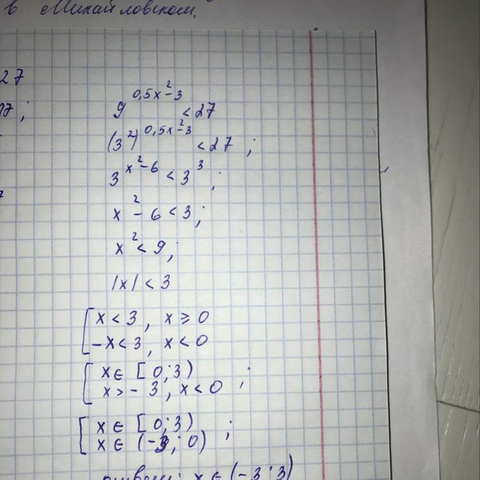 в Михайловском.
27
17;
9^{0,5x^2-3} < 27
(3^2)^{0,5x^2-3} < 27 ;
3^{x^2-6} < 3^3 ;
x^2 - 6 < 3 ;
x^2 < 9 ;
|x| < 3
[ x < 3 , x ≥ 0
-x < 3 , x < 0
[ x ∈ [0; 3)
x > -3 , x < 0 ;
[ x ∈ [0; 3)
x ∈ (-3; 0) ;
ответ: x ∈ (-3; 3)